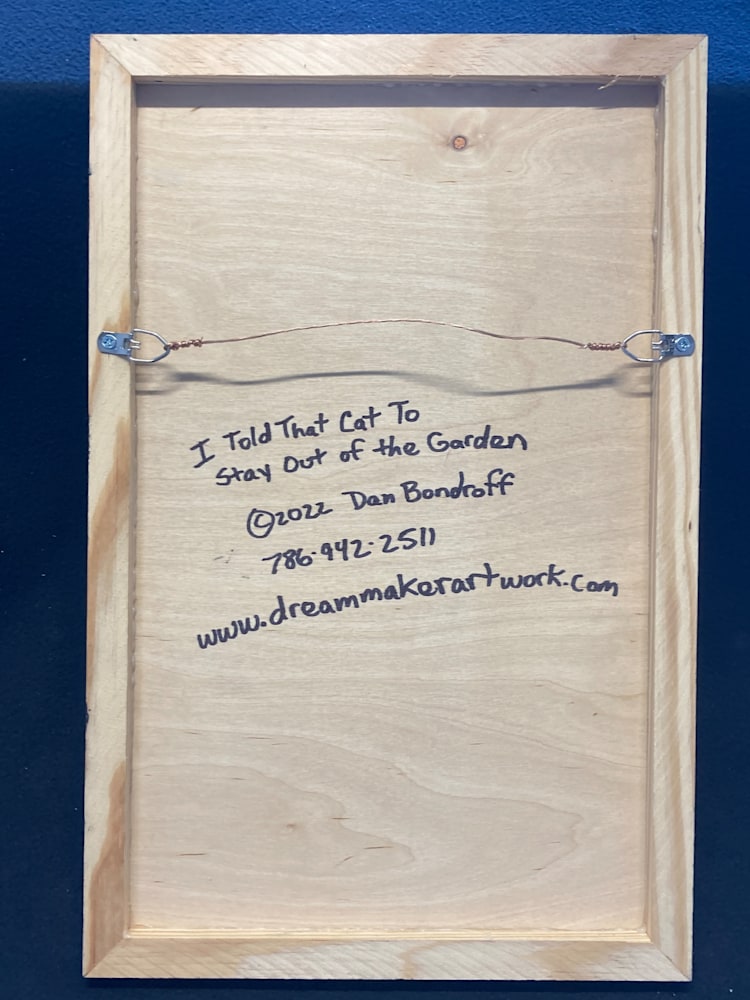 I Told That Cat To
Stay Out of the Garden
©2022 Dan Bondroff
786-942-2511
www.dreammakerartwork.com